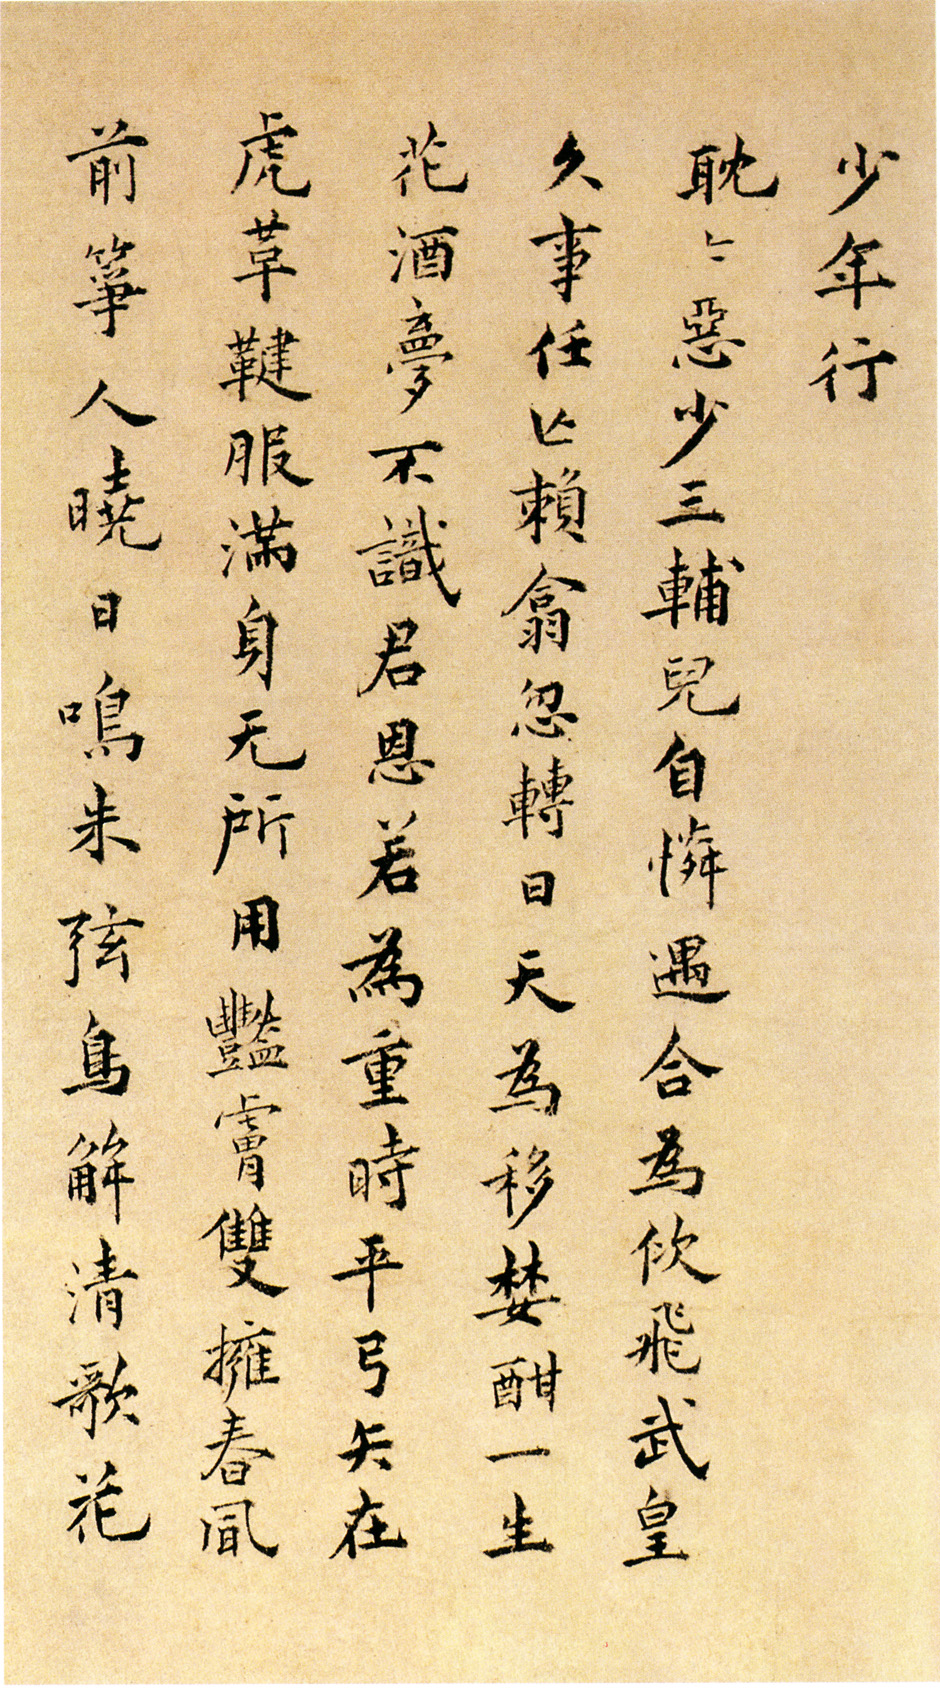 少年行
耽〻惡少三輔兒自憐遇合為佽飛武皇
久事任亾賴翕忽轉日天為移婪酣一生
花酒夢不識君恩若為重時平弓矢在
虎韋鞬服滿身无所用豔膏雙擁春風
前箏人曉日鳴朱弦鳥解清歌花